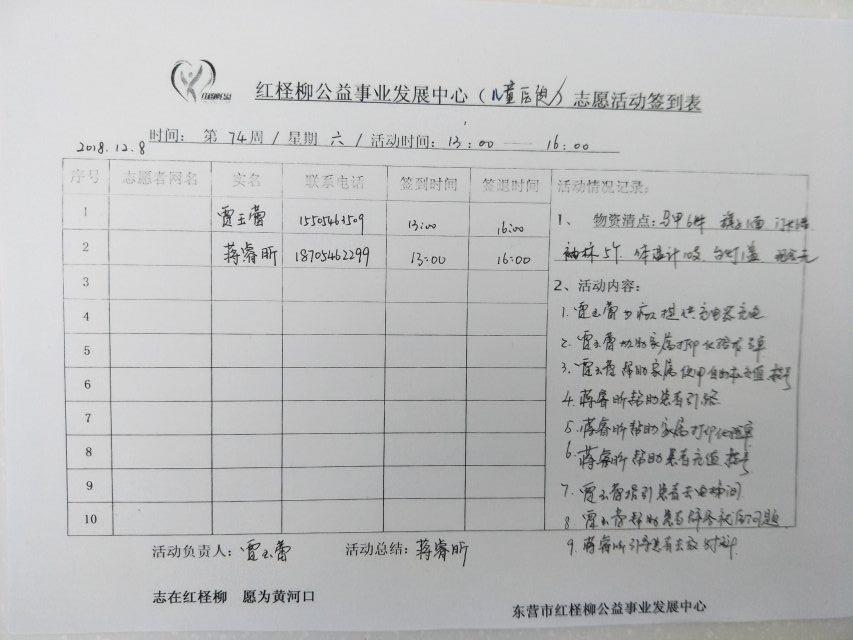 红柽柳公益事业发展中心（儿童医院）志愿活动签到表
2018.12.8 时间： 第 74周 / 星期 六 / 活动时间：13：00 —— 16：00
序号 志愿者网名 实名 联系电话 签到时间 签退时间
1 贾玉蕾 15505463509 13:00 16:00
2 蒋睿昕 18705462299 13:00 16:00
3
4
5
6
7
8
9
10
活动情况记录：
1、 物资清点：马甲6件 旗子1面
袖标5个 体温计 台灯1盏
2、活动内容：
1. 贾玉蕾 提供充电器充电
2. 贾玉蕾帮助家属打印化验单
3. 贾玉蕾帮助家属使用自助机充值 挂号
4. 蒋睿昕帮助患者引路
5. 蒋睿昕帮助家属打印化验单
6. 蒋睿昕帮助患者充值 挂号
7. 贾玉蕾指引患者去电梯间
8 贾玉蕾帮助患者解答 问题
9. 蒋睿昕引导患者去
活动负责人：贾玉蕾 活动总结：蒋睿昕
志在红柽柳 愿为黄河口
东营市红柽柳公益事业发展中心